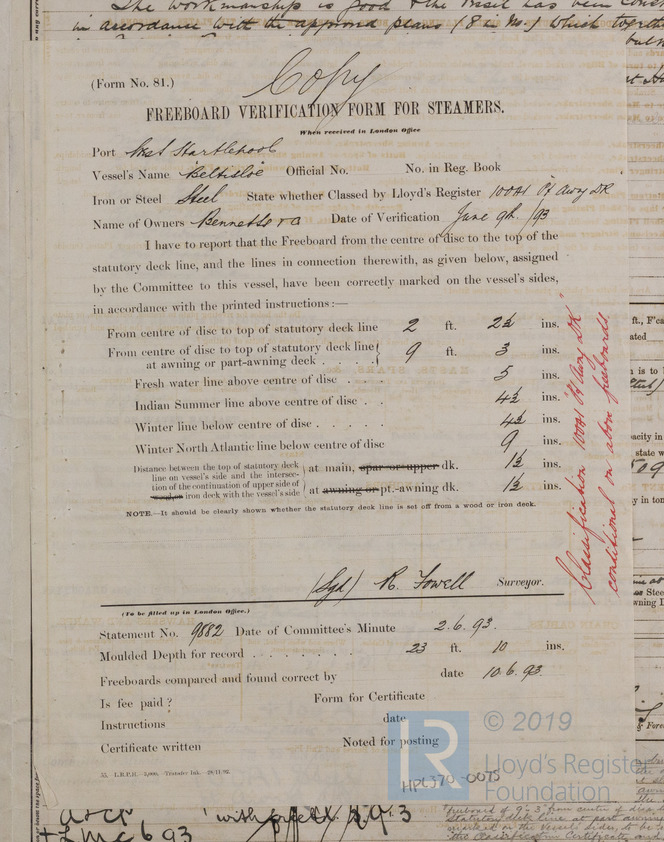 The workmanship is good & the Vessel has been
in accordance with the approved plans (8 in No.) which
Copy
(Form No. 81.)
FREEBOARD VERIFICATION FORM FOR STEAMERS.
When received in London Office
Port West Hartlepool
Vessel's Name Belleisle Official No. No. in Reg. Book
Iron or Steel Steel State whether Classed by Lloyd's Register 100A1 Pt Awg DK
Name of Owners Bennetts & Co Date of Verification June 9th /93
I have to report that the Freeboard from the centre of disc to the top of the
statutory deck line, and the lines in connection therewith, as given below, assigned
by the Committee to this vessel, have been correctly marked on the vessel's sides,
in accordance with the printed instructions:—
From centre of disc to top of statutory deck line 2 ft. 2½ ins.
From centre of disc to top of statutory deck line
at awning or part-awning deck 9 ft. 3 ins.
Fresh water line above centre of disc 5 ins.
Indian Summer line above centre of disc 4½ ins.
Winter line below centre of disc 4½ ins.
Winter North Atlantic line below centre of disc 9 ins.
Distance between the top of statutory deck
line on vessel's side and the intersec-
tion of the continuation of upper side of
wood, or iron deck with the vessel's side
at main, spar or upper dk. 1½ ins.
at awning or pt.-awning dk. 1½ ins.
NOTE.—It should be clearly shown whether the statutory deck line is set off from a wood or iron deck.
Classification "100A1 Pt Awg DK"
conditional on above freeboards.
(Sgd) R. Fowell Surveyor.
(To be filled up in London Office.)
Statement No. 9882 Date of Committee's Minute 2.6.93.
Moulded Depth for record 23 ft. 10 ins.
Freeboards compared and found correct by date 10.6.93.
Is fee paid? Form for Certificate
Instructions date
Certificate written Noted for posting
55. L.R.P.H. 5,000. Transfer Ink. 28/11/92.
© 2019
Lloyd's Register
Foundation
HPL370-0075